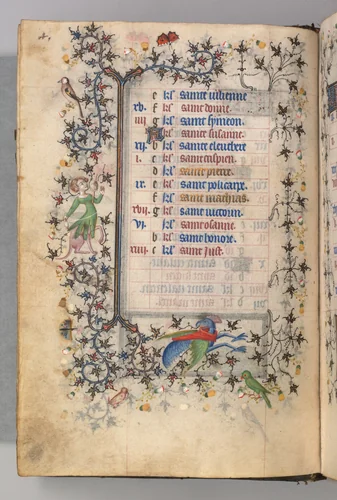 e kl' sainte iulienne
xv. f kl' saint donne.
iiii g kl' saint symeon.
A kl' sainte susanne.
xii. b kl' saint eleuthere
i. c kl' saint aspien.
d kl' saint pierre.
ix. e kl' saint policarpe.
f kl' saint mathias.
xvii. g kl' saint victorin.
vi. kl' saint
b kl' saint honore.
xiiii c kl' saint Just.